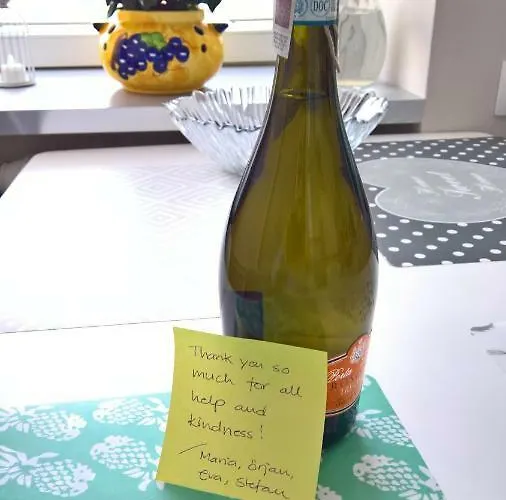 DOC
Thank you so
much for all
help and
kindness!
/ Maria, Örjan,
Eva, Stefan